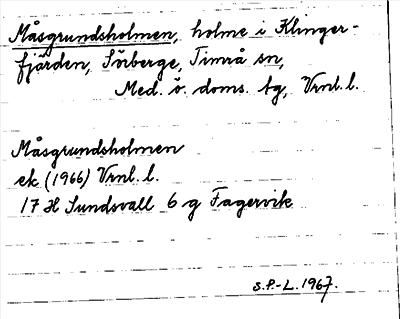 Måsgrundsholmen, holme i Klinger-
fjärden, Sörberge, Timrå sn,
Med. ö. doms. tg, Vrnl. l.
Måsgrundsholmen
ek (1966) Vrnl. l.
17 H Sundsvall 6 g Fagervik
S.P.-L. 1967.